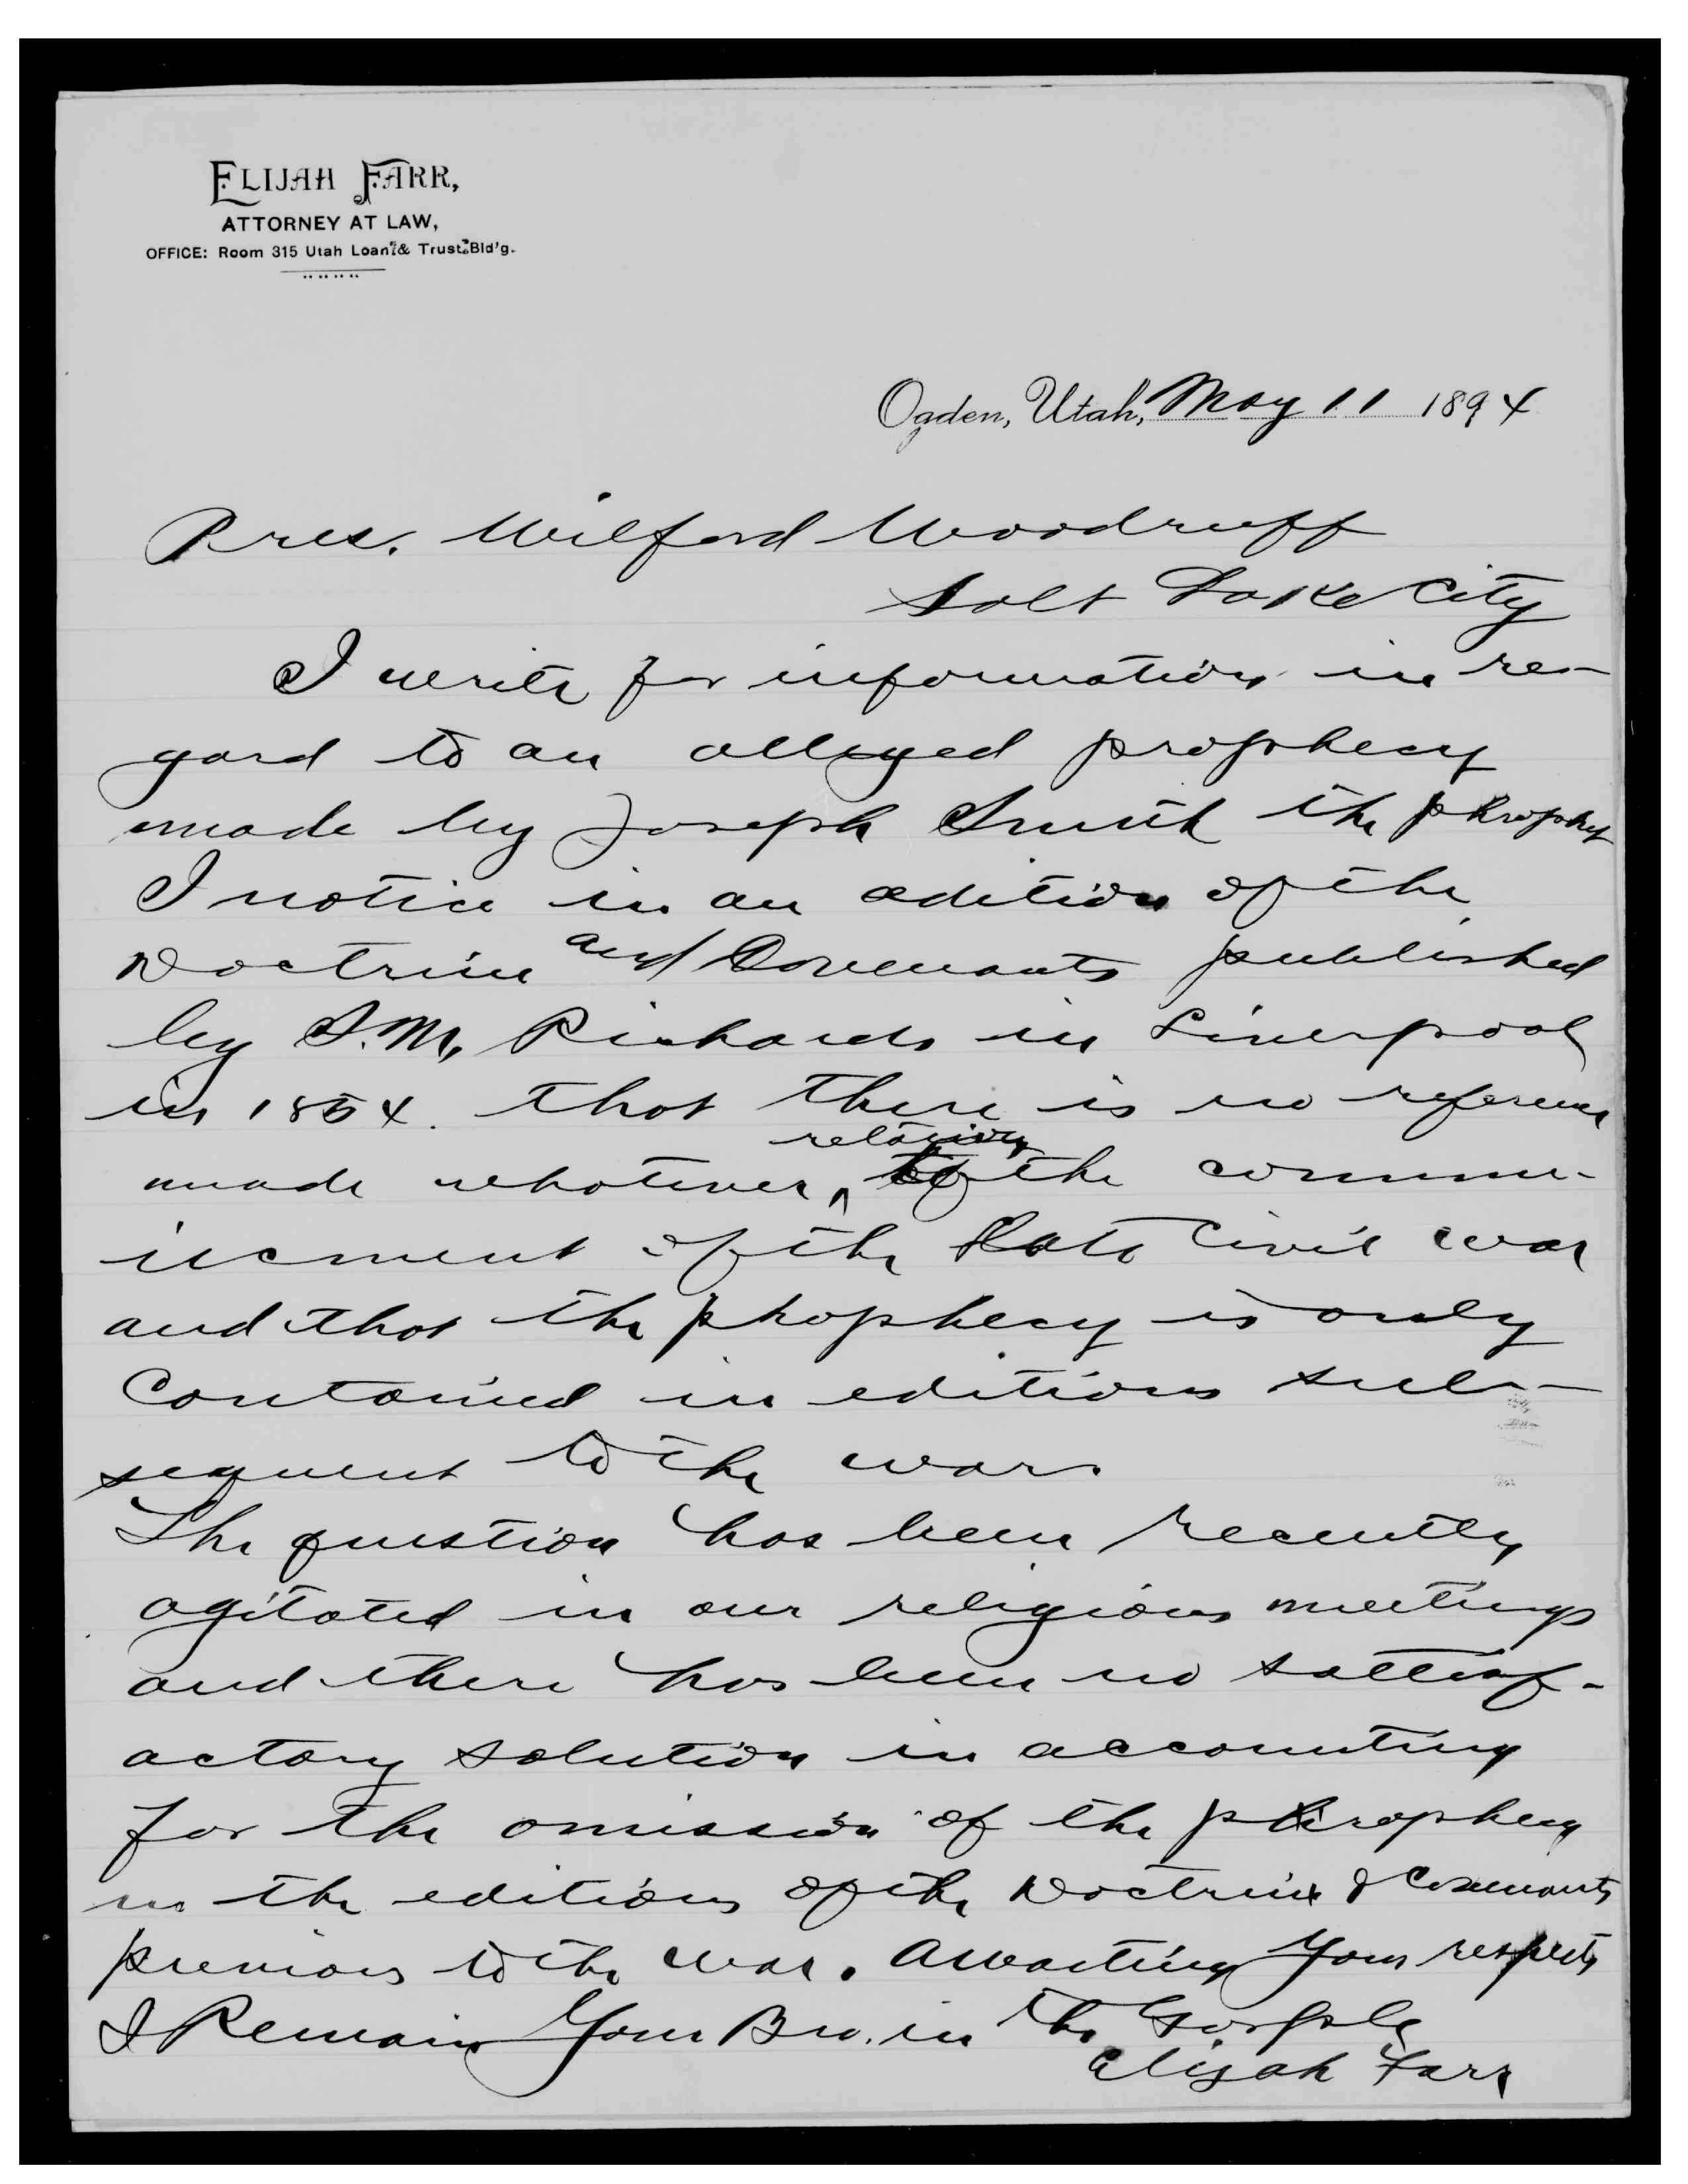 ELIJAH FARR,
ATTORNEY AT LAW,
OFFICE: Room 315 Utah Loan & Trust Bld'g.
Ogden, Utah, May 11 1894
Pres. Wilford Woodruff
Salt Lake City
I write for information in re-
gard to an alleged prophecy
made by Joseph Smith the prophet
I notice in an edition of the
Doctrine and Covenants published
by S.M. Richards in Liverpool
in 1854. that there is no reference
relating
made whatever ^ to the comme-
ncment of the late Civil war
and that the prophecy is only
Contained in editions sub-
sequent to the war.
The question has been recently
agitated in our religious meetings
and there has been no sattisf-
actory solution in accounting
for the omission of the prophecy
in the editions of the Doctrine & Covenants
previous to the war. Awaiting your
I Remain Your Bro. in the Gosple
Elijah Farr